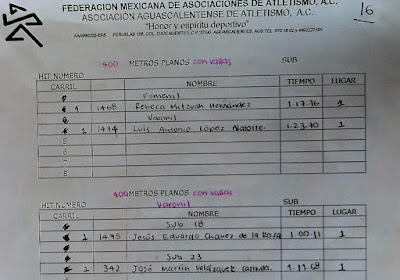 FEDERACION MEXICANA DE ASOCIACIONES DE ATLETISMO, A.C.
ASOCIACIÓN AGUASCALENTENSE DE ATLETISMO, A.C.
"Honor y espíritu deportivo"
16
400 METROS PLANOS con vallas SUB
HIT NUMERO
CARRIL NOMBRE TIEMPO LUGAR
Femenil
1 1468 Rebeca Mitzvah Hernández 1:17.76 1
Varonil
1 1474 Luis Antonio López Alatorre. 1:23.70 1
5
6
7
8
400 METROS PLANOS con vallas SUB
HIT NUMERO Varonil
CARRIL NOMBRE TIEMPO LUGAR
Sub 18
1 1495 Jesús Eduardo Chavez de la Rosa 1:00.11 1
Sub 23
1 342 José Martín Velázquez 1:19.68 1